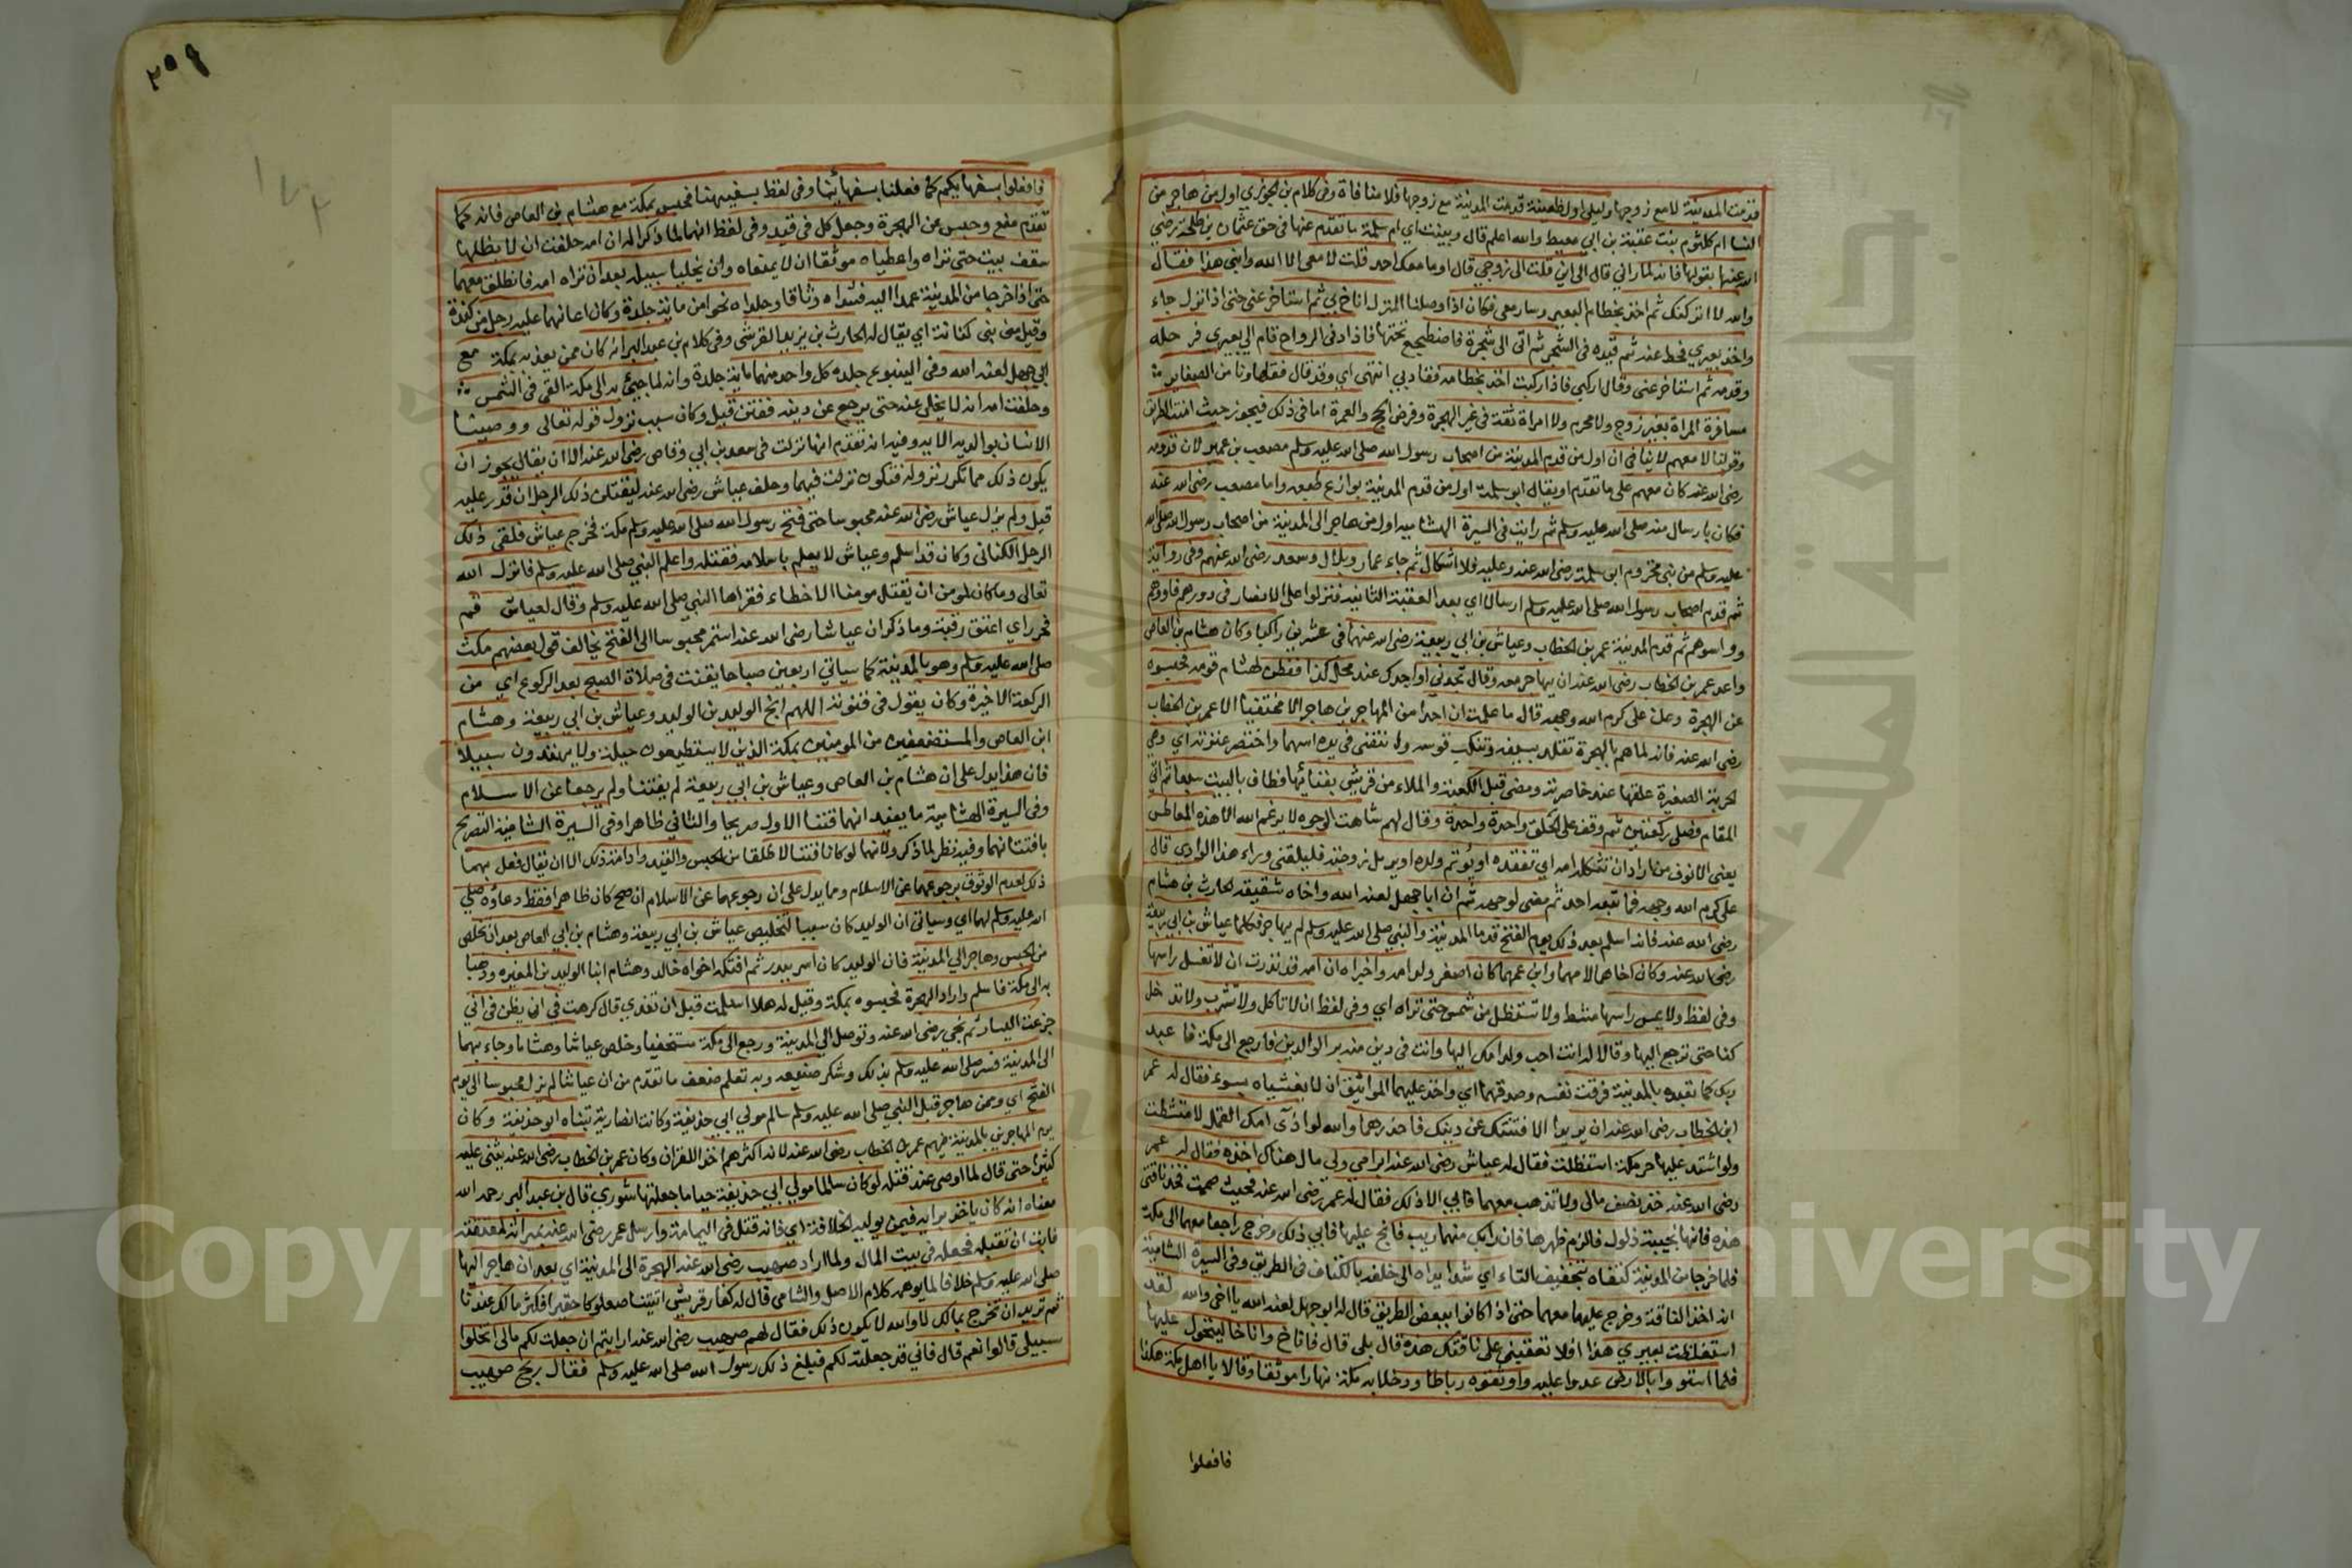 قدمت المدينة لا مع زوجها وليلي اول ظعينة قدمت المدينة مع زوجها فلا منافاة وفي كلام بن الجوزي اول من هاجر من
النسا ام كلثوم بنت عقبة بن ابي معيط والله اعلم قال وبينت اي ام سلمة ما تقدم عنها في حق عثمان بن طلحة رضي
الله عنها بقولها فانه لما راني قال الي اين قلت الى زوجي قال اوما معك احد قلت لا معي الا الله وابني هذا فقال
والله لا اتركنك ثم اخذ بخطام البعير وسار معي فكان اذا وصلنا المنزل اناخ بي ثم استاخر عني حتى اذا نزلت جاء
واخذ بعيري فحط عنه ثم قيده في الشجر ثم اتى الى شجرة فاضطجع تحتها فاذا دنى الرواح قام الي بعيري فرحله
وقدمه ثم استاخر عني وقال اركبي فاذا ركبت اخذ بخطامه فقاد بي انتهى اي وقد قال فقهاونا من الصغاير
مسافرة المراة بغير زوج ولا محرم ولا امراة ثقة في غير الهجرة وفرض الحج والعمرة اما في ذلك فيجوز حيث امنت الطريق
وقولنا لا معهم لا ينافي ان اول من قدم المدينة من اصحاب رسول الله صلى الله عليه وسلم مصعب بن عمير لان قدومه
رضي الله عنه كان معهم على ما تقدم او يقال ابو سلمة اول من قدم المدينة بوازع طبعه واما مصعب رضي الله عنه
فكان بارسال منه صلى الله عليه وسلم ثم رايت في السيرة الهشامية اول من هاجر الى المدينة من اصحاب رسول الله صلى الله
عليه وسلم من بني مخزوم ابو سلمة رضي الله عنه وعليه فلا اشكال ثم جاء عمار وبلال وسعد رضي الله عنهم وفي رواية
ثم قدم اصحاب رسول الله صلى الله عليه وسلم ارسالا اي بعد العقبة الثانية فنزلوا على الانصار في دورهم فاووهم
وواسوهم ثم قدم المدينة عمر بن الخطاب وعياش بن ابي ربيعة رضي الله عنهما في عشرين راكبا وكان هشام بن العاص
واعد عمر بن الخطاب رضي الله عنه ان يهاجر معه وقال تجدني او اجدك عند محل كذا ففطن لهشام قومه فحبسوه
عن الهجرة وعن على كرم الله وجهه قال ما علمت ان احدا من المهاجرين هاجر الا مختفيا الا عمر بن الخطاب
رضي الله عنه فانه لما هم بالهجرة تقلد بسيفه وتنكب قوسه وانتضى في يده اسهما واختصر عنزته اي وهي
الحربة الصغيرة علقها عند خاصرته ومضى قبل الكعبة والملاء من قريش بفنائها فطاف بالبيت سبعا ثم اتى
المقام فصلى ركعتين ثم وقف على الحلق واحدة واحدة وقال لهم شاهت الوجوه لا يرغم الله الا هذه المعاطس
يعني الانوف من اراد ان تثكله امه اي تفقده او يؤتم ولده او يرمل زوجته فليلقني وراء هذا الوادي قال
على كرم الله وجهه فما تبعه احد ثم مضى لوجهه ثم ان ابا جهل لعنه الله واخاه شقيقه الحارث بن هشام
رضي الله عنه فانه اسلم بعد ذلك يوم الفتح قدما المدينة والنبي صلى الله عليه وسلم لم يهاجر فكلما عياش بن ابي ربيعة
رضي الله عنه وكان اخاهما لامهما وابن عمهما كان اصغر ولد امه واخبراه ان امه قد نذرت ان لا تغسل راسها
وفي لفظ ولا يمس راسها مشط ولا تستظل من شمس حتى تراه اي وفي لفظ ان لا تاكل ولا تشرب ولا تدخل
كنا حتى ترجع اليها وقالا له انت احب ولد امك اليها وانت في دين منه بر الوالدين فارجع الى مكة فاعبد
ربك كما تعبده بالمدينة فرقت نفسه وصدقهما اي واخذ عليهما المواثيق ان لا يغشياه بسوء فقال له عمر
ابن الخطاب رضي الله عنه ان يريدا الا فتنتك عن دينك فاحذرهما والله لو اذى امك القمل لامتشطت
ولو اشتد عليها حر مكة استظلت فقال له عياش رضي الله عنه ابر امي ولي مال هناك اخذه فقال له عمر
رضي الله عنه خذ نصف مالى ولا تذهب معهما فابي الا ذلك فقال له عمر رضي الله عنه فحيث صممت فخذ ناقتي
هذه فانها نجيبة ذلول فالزم ظهرها فان رابك منهما ريب فانج عليها فابي ذلك وخرج راجعا معهما الى مكة
فلما خرجا من المدينة كتفاه بتخفيف التاء اي شدا يداه الى خلف بالكتاف في الطريق وفي السيرة الشامية
انه اخذ الناقة وخرج عليها معهما حتى اذا كانوا ببعض الطريق قال له ابو جهل لعنه الله يا اخي والله لقد
استغلظت بعيري هذا افلا تعقبني على ناقتك هذه قال بلى قال فاناخ واناخا ليتحول عليها
فلما استووا بالارض عدوا عليه واوثقوه رباطا ودخلا به مكة نهارا موثقا وقالا يا اهل مكة هكذا
فافعلوا
٢٥٩
١٧٢
فافعلوا بسفهائكم كما فعلنا بسفهائنا وفي لفظ بسفيهنا فحبس بمكة مع هشام بن العاص فانه كما
تقدم منع وحبس عن الهجرة وجعل كل في قيد وفي لفظ انهما لما ذكرا له ان امه حلفت ان لا يظلها
سقف بيت حتى تراه واعطياه موثقا ان لا يمنعاه وان يخليا سبيله بعد ان تراه امه فانطلق معهما
حتى اذا خرجا من المدينة عمدا اليه فشداه وثاقا وجلداه نحوا من ماية جلدة وكان اعانهما عليه رجل من كندة
وقيل من بني كنانة اي يقال له الحارث بن يزيد القرشي وفي كلام بن عبد البر انه كان ممن يعذبه بمكة مع
ابي جهل لعنه الله وفي الينبوع جلده كل واحد منهما ماية جلدة وانه لما جيئ به الى مكة القي في الشمس
وحلفت امه انه لا يخلى عنه حتى يرجع عن دينه ففتن قيل وكان سبب نزول قوله تعالى ووصينا
الانسان بوالديه الاية وفيه انه تقدم انها نزلت في سعد بن ابي وقاص رضي الله عنه الا ان يقال يجوز ان
يكون ذلك مما تكرر نزوله فتكون نزلت فيهما وحلف عياش رضي الله عنه ليقتلن ذلك الرجل ان قدر عليه
قيل ولم يزل عياش رضي الله عنه محبوسا حتى فتح رسول الله صلى الله عليه وسلم مكة فخرج عياش فلقي ذلك
الرجل الكناني وكان قد اسلم وعياش لا يعلم باسلامه فقتله واعلم النبي صلى الله عليه وسلم فانزل الله
تعالى وما كان لمومن ان يقتل مومنا الا خطاء فقراها النبي صلى الله عليه وسلم وقال لعياش قم
فحرر اي اعتق رقبة وما ذكر ان عياشا رضي الله عنه استمر محبوسا الى الفتح يخالف قول بعضهم مكث
صلى الله عليه وسلم وهو بالمدينة كما سياتي اربعين صباحا يقنت في صلاة الصبح بعد الركوع اي من
الركعة الاخيرة وكان يقول في قنوته اللهم انج الوليد بن الوليد وعياش بن ابي ربيعة وهشام
ابن العاص والمستضعفين من المومنين بمكة الذين لا يستطيعون حيلة ولا يهتدون سبيلا
فان هذا يدل على ان هشام بن العاص وعياش بن ابي ربيعة لم يفتنا ولم يرجعا عن الاسلام
وفي السيرة الهشامية ما يفيد انهما فتنا الاول صريحا والثاني ظاهرا وفي السيرة الشامية التصريح
بافتتانهما وفيه نظر لما ذكر ولانهما لو كانا فتنا لاطلقا من الحبس والقيد وادامة ذلك الا ان يقال فعل بهما
ذلك لعدم الوثوق برجوعهما عن الاسلام ومما يدل على ان رجوعهما عن الاسلام ان صح كان ظاهرا فقط دعاؤه صلى
الله عليه وسلم لهما اي وسياتي ان الوليد كان سببا لتخليص عياش بن ابي ربيعة وهشام بن ابي العاص بعد ان تخلص
من الحبس وهاجر الي المدينة فان الوليد كان اسر ببدر ثم افتكه اخواه خالد وهشام ابنا الوليد بن المغيره وذهبا
به الى مكة فاسلم واراد الهجرة فحبسوه بمكة وقيل له هلا اسلمت قبل ان تفدي قال كرهت ان يظن في اني
جزعت اليسار ثم نجي رضي الله عنه وتوصل الي المدينة ورجع الى مكة مستخفيا وخلص عياشا وهشاما وجاء بهما
الى المدينة فسر صلى الله عليه وسلم بذلك وشكر صنيعه وبه تعلم ضعف ما تقدم من ان عياشا لم يزل محبوسا الى يوم
الفتح اي وممن هاجر قبل النبي صلى الله عليه وسلم سالم مولي ابي حذيفة وكانت انصارية تبناه ابو حذيفة وكان
يوم المهاجرين بالمدينة فيهم عمر بن الخطاب رضي الله عنه لانه اكثرهم اخذا للقران وكان عمر بن الخطاب رضي الله عنه يثني عليه
كثيرا حتى قال لما اوصى عند قتله لو كان سالما مولي ابي حذيفة حيا ما جعلتها شوري قال بن عبد البر رحمه الله
معناه انه كان ياخذ برايه فيمن يوليه الخلافة اي فانه قتل في اليمامة وارسل عمر رضي الله عنه بميراثه لمعتقته
فابت ان تقبله فجعله في بيت المال ولما اراد صهيب رضي الله عنه الهجرة الى المدينة اي بعد ان هاجر اليها
صلى الله عليه وسلم خلافا لما يوهمه كلام الاصل والشامي قال له كفار قريش اتيتنا صعلوكا حقيرا فكثر مالك عندنا
ثم تريد ان تخرج بمالك لا والله لا يكون ذلك فقال لهم صهيب رضي الله عنه ارايتم ان جعلت لكم مالى اتخلوا
سبيلى قالوا نعم قال فاني قد جعلته لكم فبلغ ذلك رسول الله صلى الله عليه وسلم فقال ربح صهيب
Copyright © King Saud University